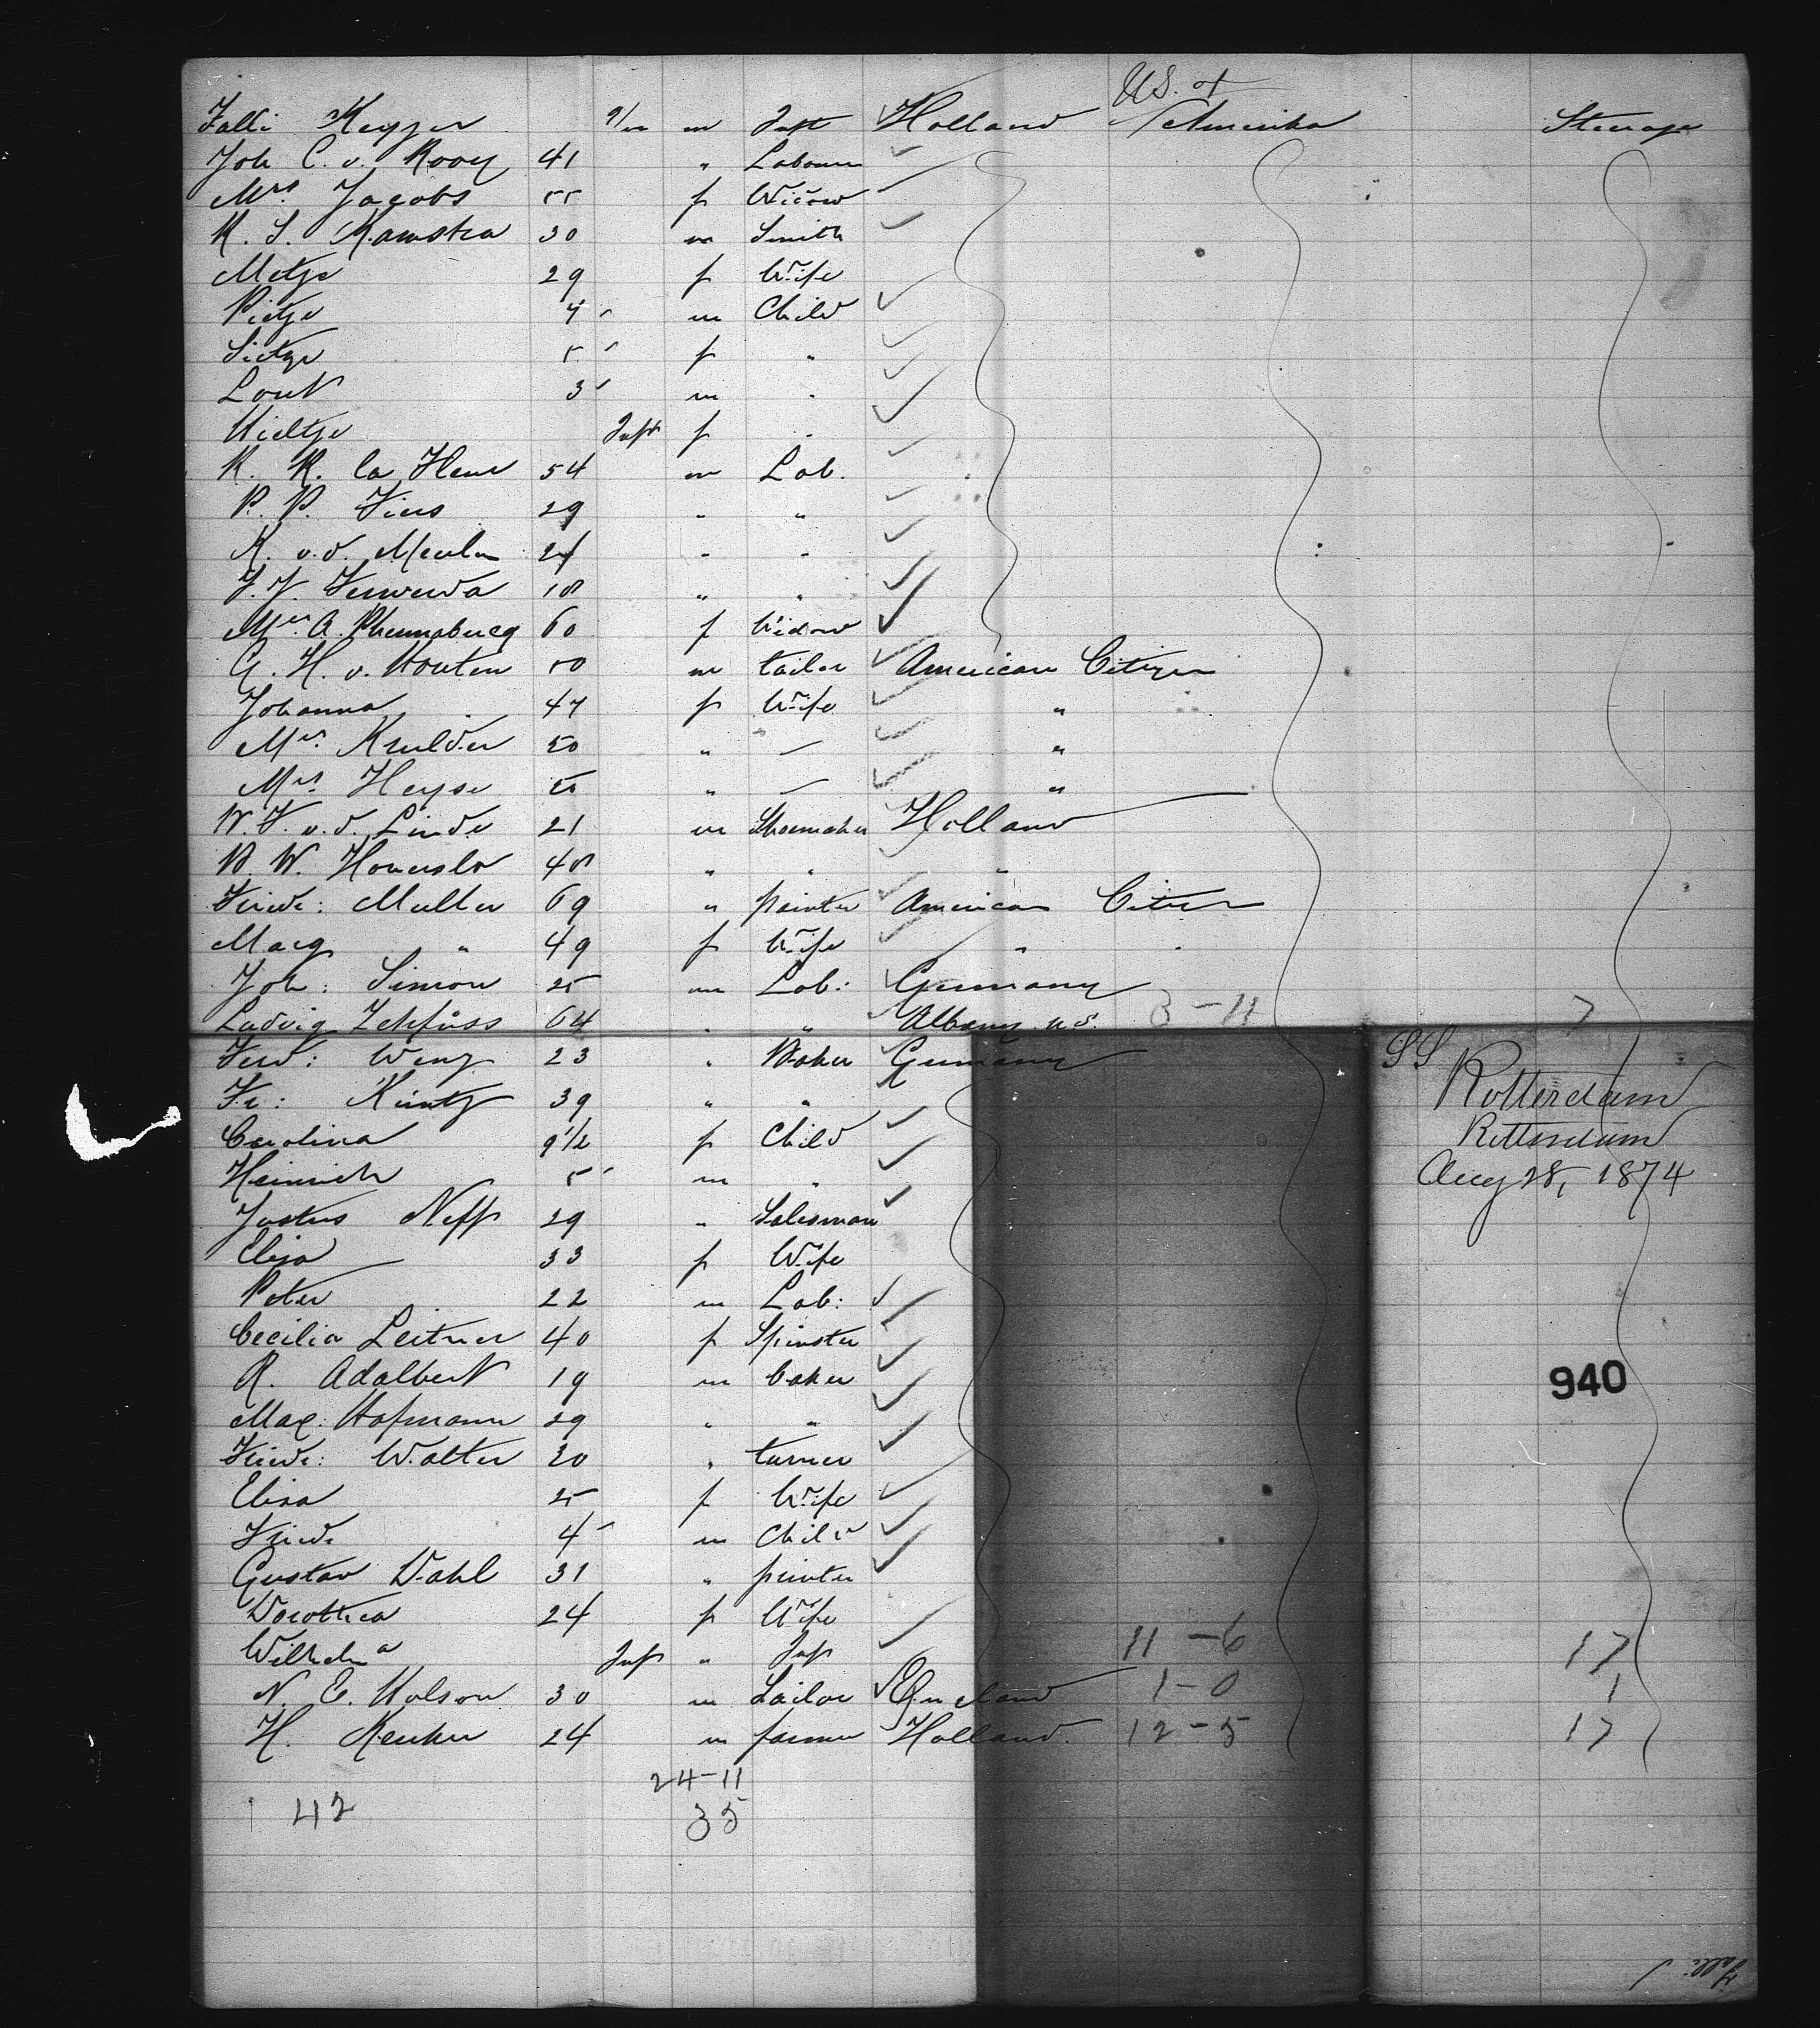 U.S. of
Falli Keyzer 9/m m Inft Holland Amerika Steerage
Joh C. v. Rooy 41 " Labourer
Mrs. Jacobs 55 f Widow
K. S. Kamstra 30 m Smith
Metje 29 f Wife
Pietje 4 m Child
Sietze 5 f "
Lout 3 m "
Hieltje Inft f "
K. K. la Fleur 54 m Lab.
P. P. Fiers 29 " "
K. v.d. Meulen 24 " "
F. F. Ferwerda 18 " "
Mrs. A. 60 f Widow
G. H. v. Houten 50 m tailor American Citizen
Johanna 47 f Wife "
Mrs. Krulder 50 " — "
Mrs. Heyse " — "
W. F. v.d. Linde 21 m Shoemaker Holland
B. W. Howerslo 48 " " "
Friedr: Muller 69 " painter American Citizen
Marg " 49 f Wife " "
Joh: Simon 25 m Lab: Germany
Ludvig Zehfüss 64 " " Albany U.S. 3-11 7
Ferd: Weng 23 " Baker Germany
Fr: Kuntz 39 " "
Carolina 9 1/2 f Child
Heinrich 5 m "
Justus Neff 29 " Salesman
Elisa 33 f Wife
Peter 22 m Lab:
Cecilia Leitner 40 f Spinster
R. Adalbert 19 m baker
Max: Hofmann 29 " "
Friedr: Walter 30 " turner
Elisa 25 f Wife
Friedr 4 m Child
Gustav Dahl 31 " printer
Dorothea 24 f Wife
Wilhelma Inft " Inft 11-6 17
N. E. Holson 30 m Sailor England 1-0 1
H. Keuker 24 m farmer Holland. 12-5 17
24-11
42 35
SS
Rotterdam
Rotterdam
Aug 28, 1874
940
Falli